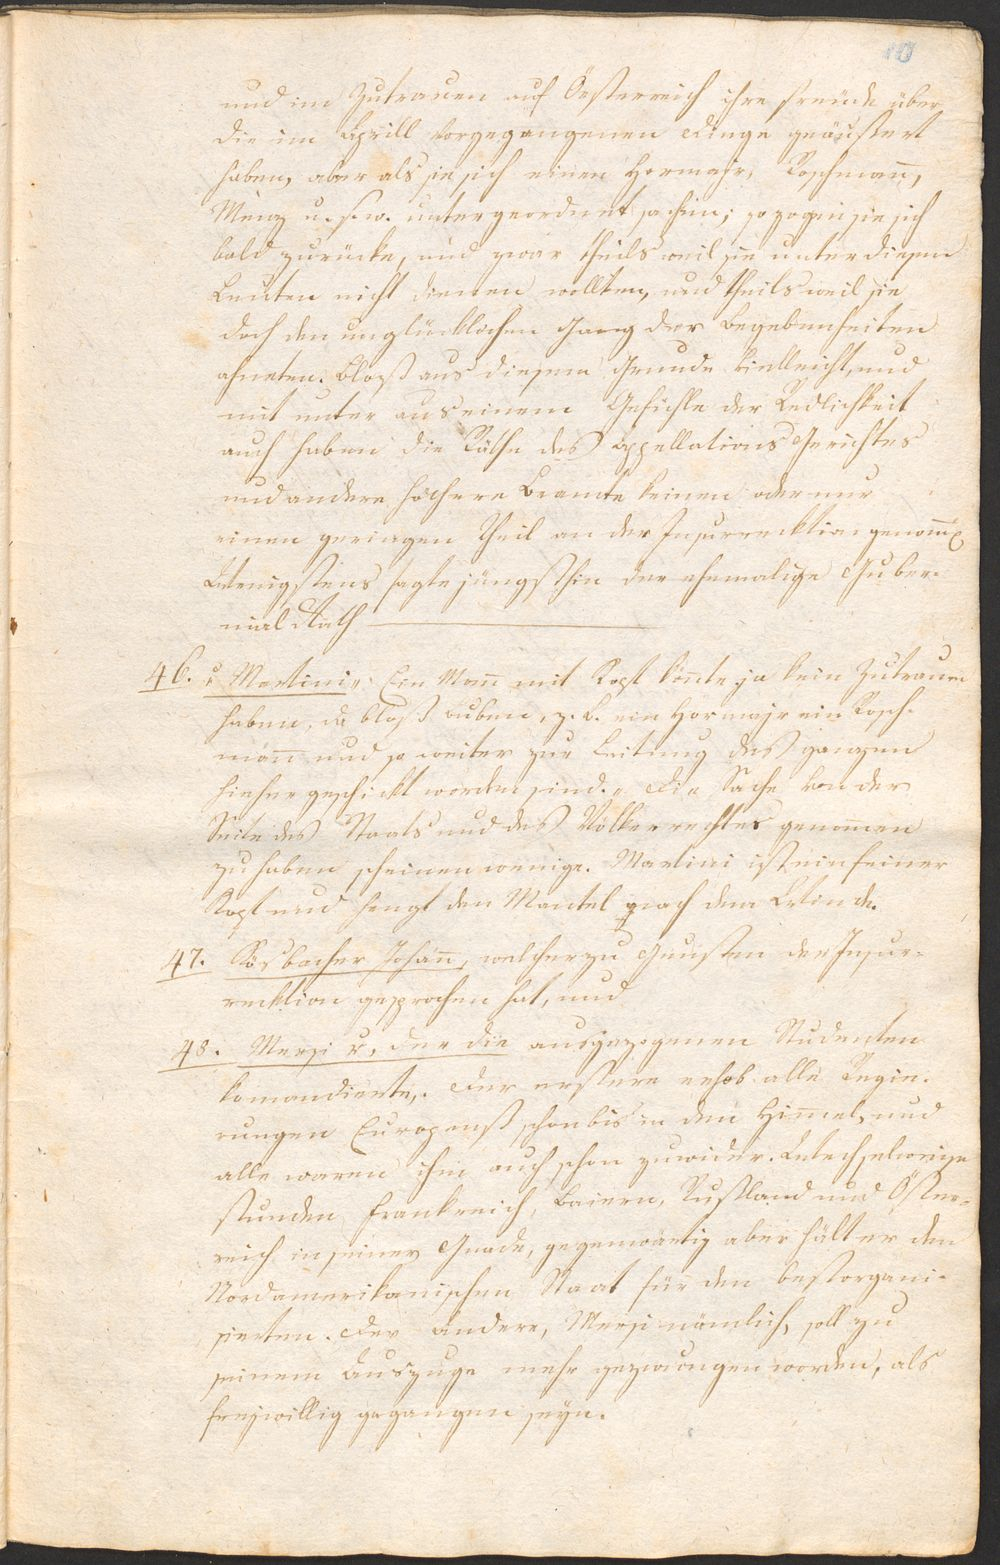 10
und im Zutrauen auf Oesterreich ihre Freude über
die im Aprill vorgegangenen Dinge geäußert
haben, aber als sie sich einem Hormajr, Roschmann,
Menz u. s. w. untergeordnet sachen; so zogen sie sich
bald zurücke, und zwar theils weil sie unter diesen
Leuten nicht dienen wollten, und theils weil sie
doch den unglücklichen Gang der Begebenheiten
ahneten. Bloß aus diesem Grunde vielleicht, und
mit unter aus einem Gefühle der Redlichkeit
auch haben die Räthe des Appellations Gerichtes
und andere höhere Beamte keinen oder nur
einen geringen Theil an der Insurrecktion genomm̄
Wenigstens sagte jüngsthin der ehemalige Guber-
nial Rath
46. „Martini„: Ein Mann mit Kopf könnte ja kein Zutrauen
haben, da bloß Buben, z. B. ein Hormajr ein Rosch-
mann und so weiter zur Leitung des ganzen
hieher geschickt worden sind.„ Die Sache von der
Seite des Staats und des Völkerrechtes genommen
zu haben scheinen wenige. Martini ist ein feiner
Kopf und hengt den Mantel nach dem Winde.
47. Rösbacher Johann, welcher zu Gunsten der Insur-
recktion gesprochen hat, und
48. Mersi v, der die ausgezogenen Studenten
komandierte,. Der erstere erhob alle Regie-
rungen Europens schon bis in den Himmel, und
alle waren ihm auch schon zuwider. Wechselweise
stunden Frankreich, Baiern, Rußland und Öster-
reich in seiner Gnade, gegenwärtig aber hält er den
Nordamerikanischen Staat für den bestorgani-
sierten. Der andere, Mersi nämlich, soll zu
seinem Auszuge mehr gezwungen worden, als
freywillig gegangen seyn.